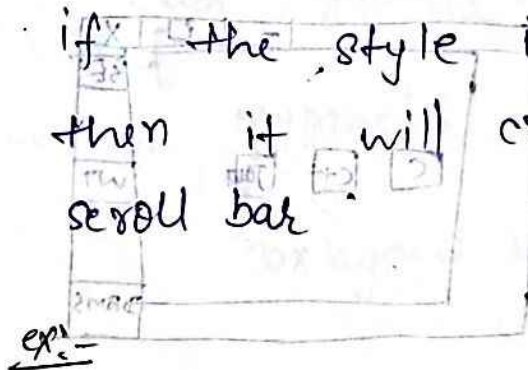 if the style i
then it will c
scroll bar.
ex:-